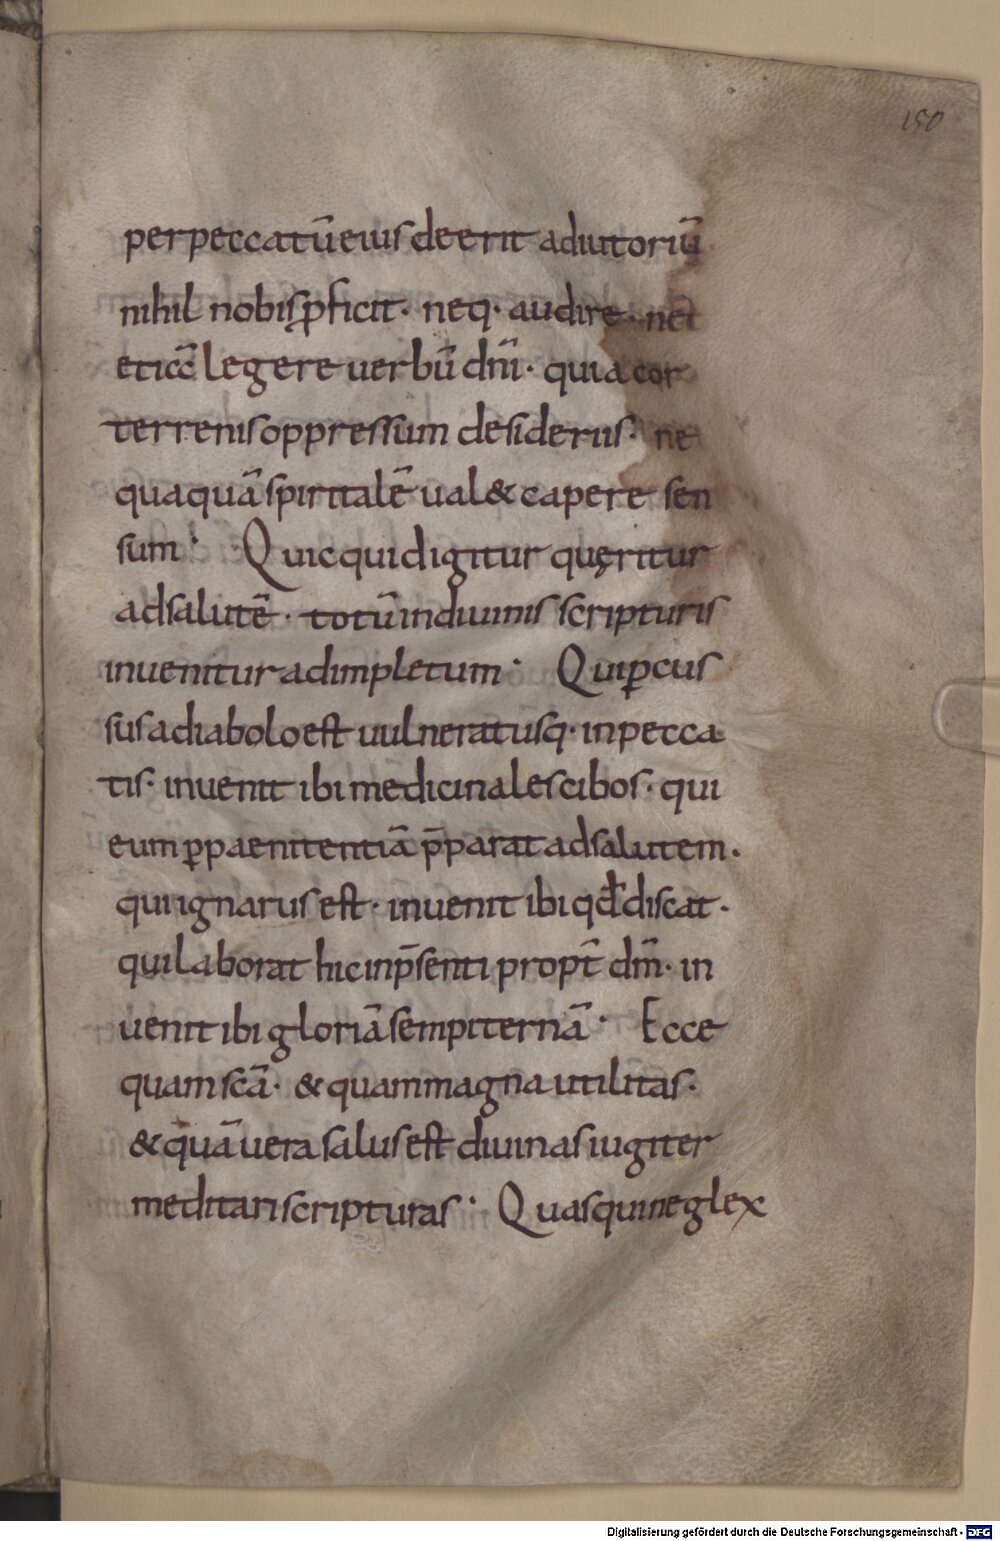 150
per peccatū eius deerit adiutoriū
nihil nobis ꝓficit · neq· audire · nec
eticā legere uerbū dn̄i · quia cor
terrenis oppressum desideriis · ne
quaquā spiritalē ual& capere sen
sum · Quicquid igitur quęritur
ad salutē · totū in diuinis scripturis
inuenitur adimpletum · Qui ꝑcus
sus a diabolo est uulneratusq· in pecca
tis · inuenit ibi medicinales cibos · qui
eum ꝑ paenitentiā p̄parat ad salutem ·
qui ignarus est · inuenit ibi qđ discat ·
qui laborat hic in p̄senti propt̄ dm̄ · in
uenit ibi gloriā sempiternā · Ecce
quam sc̄a · & quam magna utilitas ·
& quā uera salus est diuinas iugiter
meditari scripturas · Quas qui neglex
Digitalisierung gefördert durch die Deutsche Forschungsgemeinschaft - DFG